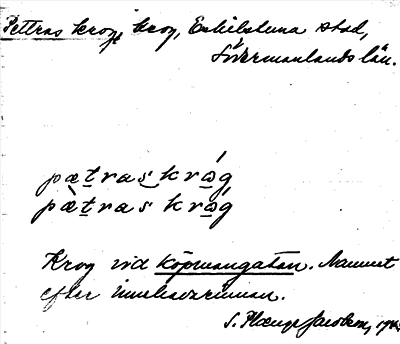 Pettras krog, krog, Eskilstuna stad,
Södermanlands län.
pætras krǿg
pæ̀tras krǿg
Krog vid Köpmangatan. Namnet
efter innehavarinnan.
S.